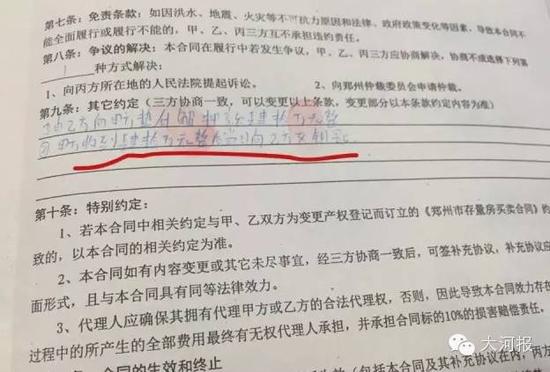 第七条：免责条款：如因洪水、地震、火灾等不可抗力原因和法律、政府政策变化等因素，导致本合同不
能全面履行或履行不能的，甲、乙、丙三方互不承担违约责任。
第八条：争议的解决：本合同在履行中若发生争议，甲、乙、丙三方应协商解决，协商不成选择下列第
1 种方式解决：
1、向丙方所在地的人民法院提起诉讼。 2、向郑州仲裁委员会申请仲裁。
第九条：其它约定（三方协商一致，可以变更以上条款，变更部分以本条款约定内容为准）
乙方向甲方 支付 万元整
甲方收到 万元整 当日向乙方交钥匙
第十条：特别约定：
1、若本合同中相关约定与甲、乙双方为变更产权登记而订立的《郑州市存量房买卖合同》约
致的，以本合同的相关约定为准。
2、本合同如有内容变更或其它未尽事宜，经三方协商一致后，可签补充协议，补充协议应
面形式，且与本合同具有同等法律效力。
3、代理人应确保其拥有代理甲方或乙方的合法代理权，否则，因此导致本合同效力存在
过程中的所产生的全部费用最终有无权代理人承担，并承担合同标的10%的损害赔偿责任，
合同的生效和终止
（包括本合同及其补充协议在内，丙方
大河报